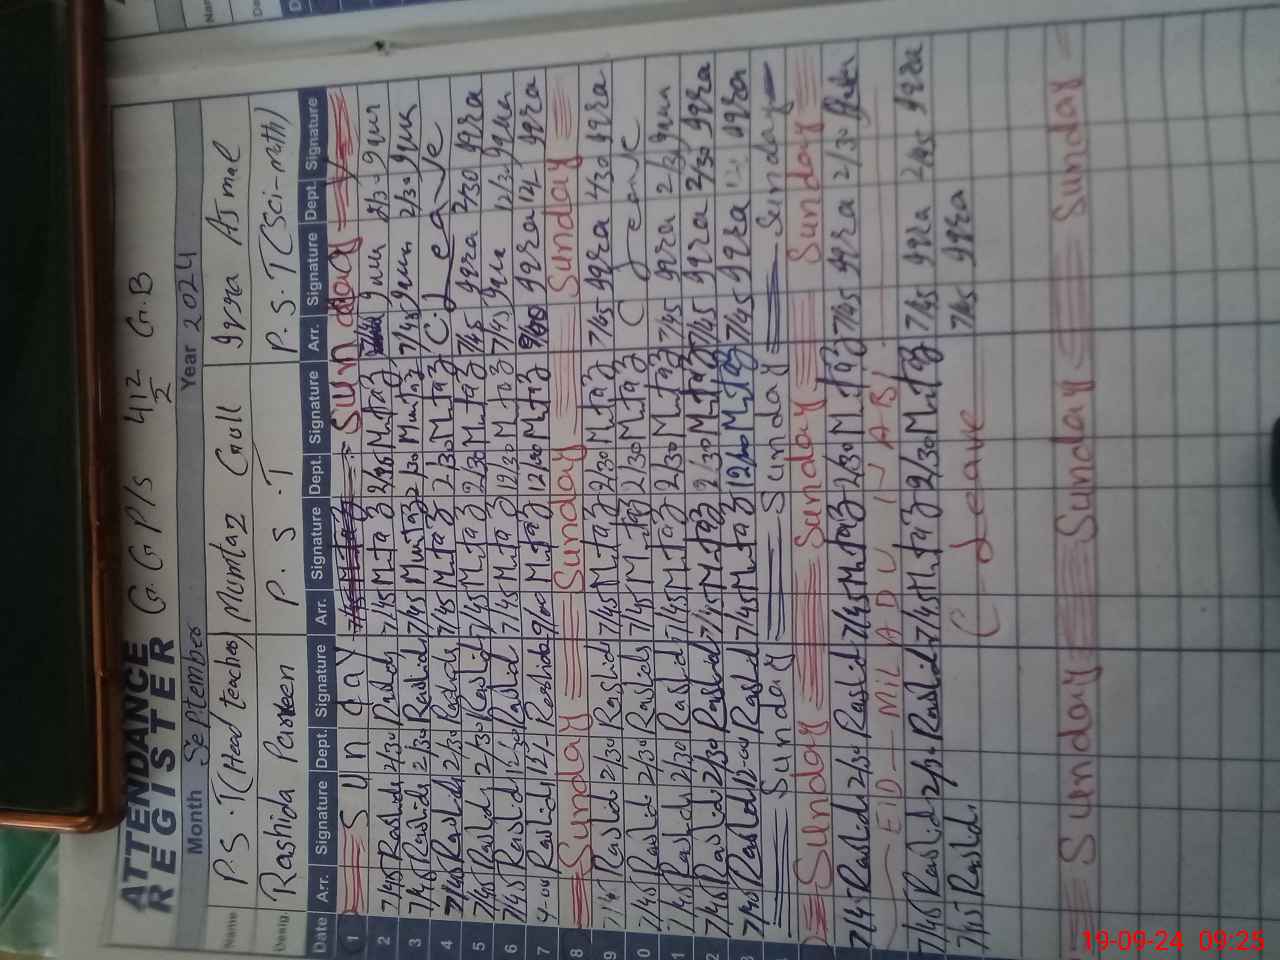 ATTENDANCE REGISTER G.G.P/s 412/2 G.B
Month September Year 2024
Name P.S.T (Head teacher) Mumtaz Gull Iqra Asmal
Desig. Rashida Parveen P. S. T P. S. T (Sci-mth)
Date Arr. Signature Dept. Signature Arr. Signature Dept. Signature Arr. Signature Dept. Signature
1 Sunday Sunday
2 7/45 Rashida 2/30 Rashida 7/45 Mumtaz Mumtaz
3 7/45 Rashida 2/30 Rashida 7/45 Mumtaz 2/30 Mumtaz 7/45 2/30
4 7/45 Rashida 2/30 Rashida 7/45 Mumtaz 2/30 Mumtaz C. Leave
5 7/45 Rashida 2/30 Rashida 7/45 Mumtaz 2/30 Mumtaz 7/45 iqra 2/30 iqra
6 7/45 Rashida 12/30 Rashida 7/45 Mumtaz 12/30 Mumtaz 7/45 iqra 12/30 iqra
7 Rashida Rashida 9/00 Mumtaz 12/30 Mumtaz iqra iqra
8 Sunday Sunday Sunday Sunday Sunday
9 7/45 Rashida 2/30 Rashida 7/45 Mumtaz 2/30 Mumtaz 7/45 iqra iqra
0 7/45 Rashida 2/30 Rashida 7/45 Mumtaz 2/30 Mumtaz C Leave
1 7/45 Rashida 2/30 Rashida 7/45 Mumtaz 2/30 Mumtaz 7/45 iqra 2/30 iqra
2 7/45 Rashida 2/30 Rashida 7/45 Mumtaz 2/30 Mumtaz 7/45 iqra 2/30 iqra
3 Rashida Rashida 7/45 Mumtaz Mumtaz 7/45 iqra iqra
Sunday Sunday Sunday Sunday Sunday
Sunday Sunday Sunday Sunday
7/45 Rashida 2/30 Rashida 7/45 Mumtaz 2/30 Mumtaz 7/45 iqra 2/30
EID MILADU NABI
7/45 Rashida 2/30 Rashida 7/45 Mumtaz 2/30 Mumtaz 7/45 iqra 2/45 iqra
Rashida C Leave 7/45 iqra
Sunday Sunday Sunday Sunday
19-09-24 09:25